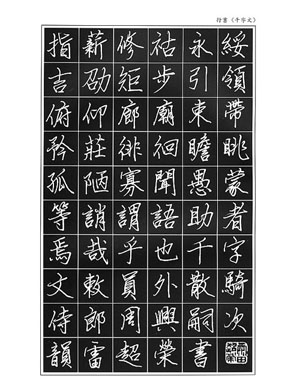 行書《千字文》
指薪修祜永綏
吉劭矩步引領
俯仰廊廟束帶
矜莊徘徊瞻眺
孤陋寡聞愚蒙
等誚謂語助者
焉哉乎也千字
文敕員外散騎
侍郎周興嗣次
韻雷超榮書